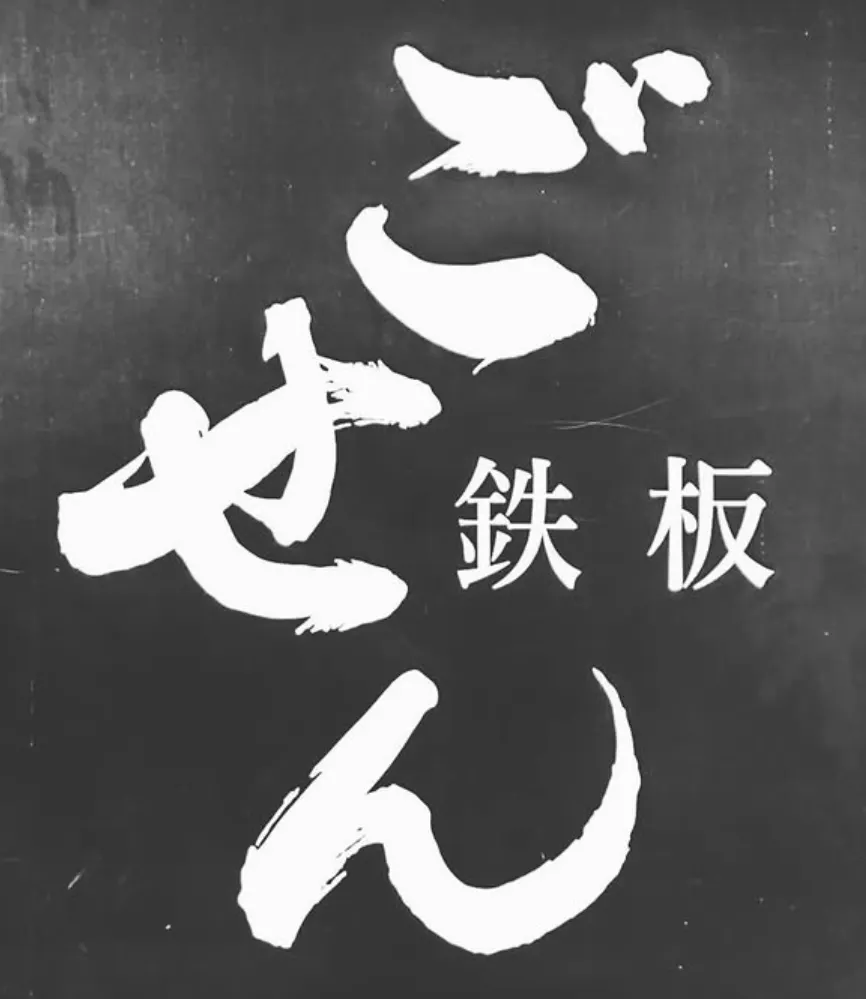 ごせん
鉄板